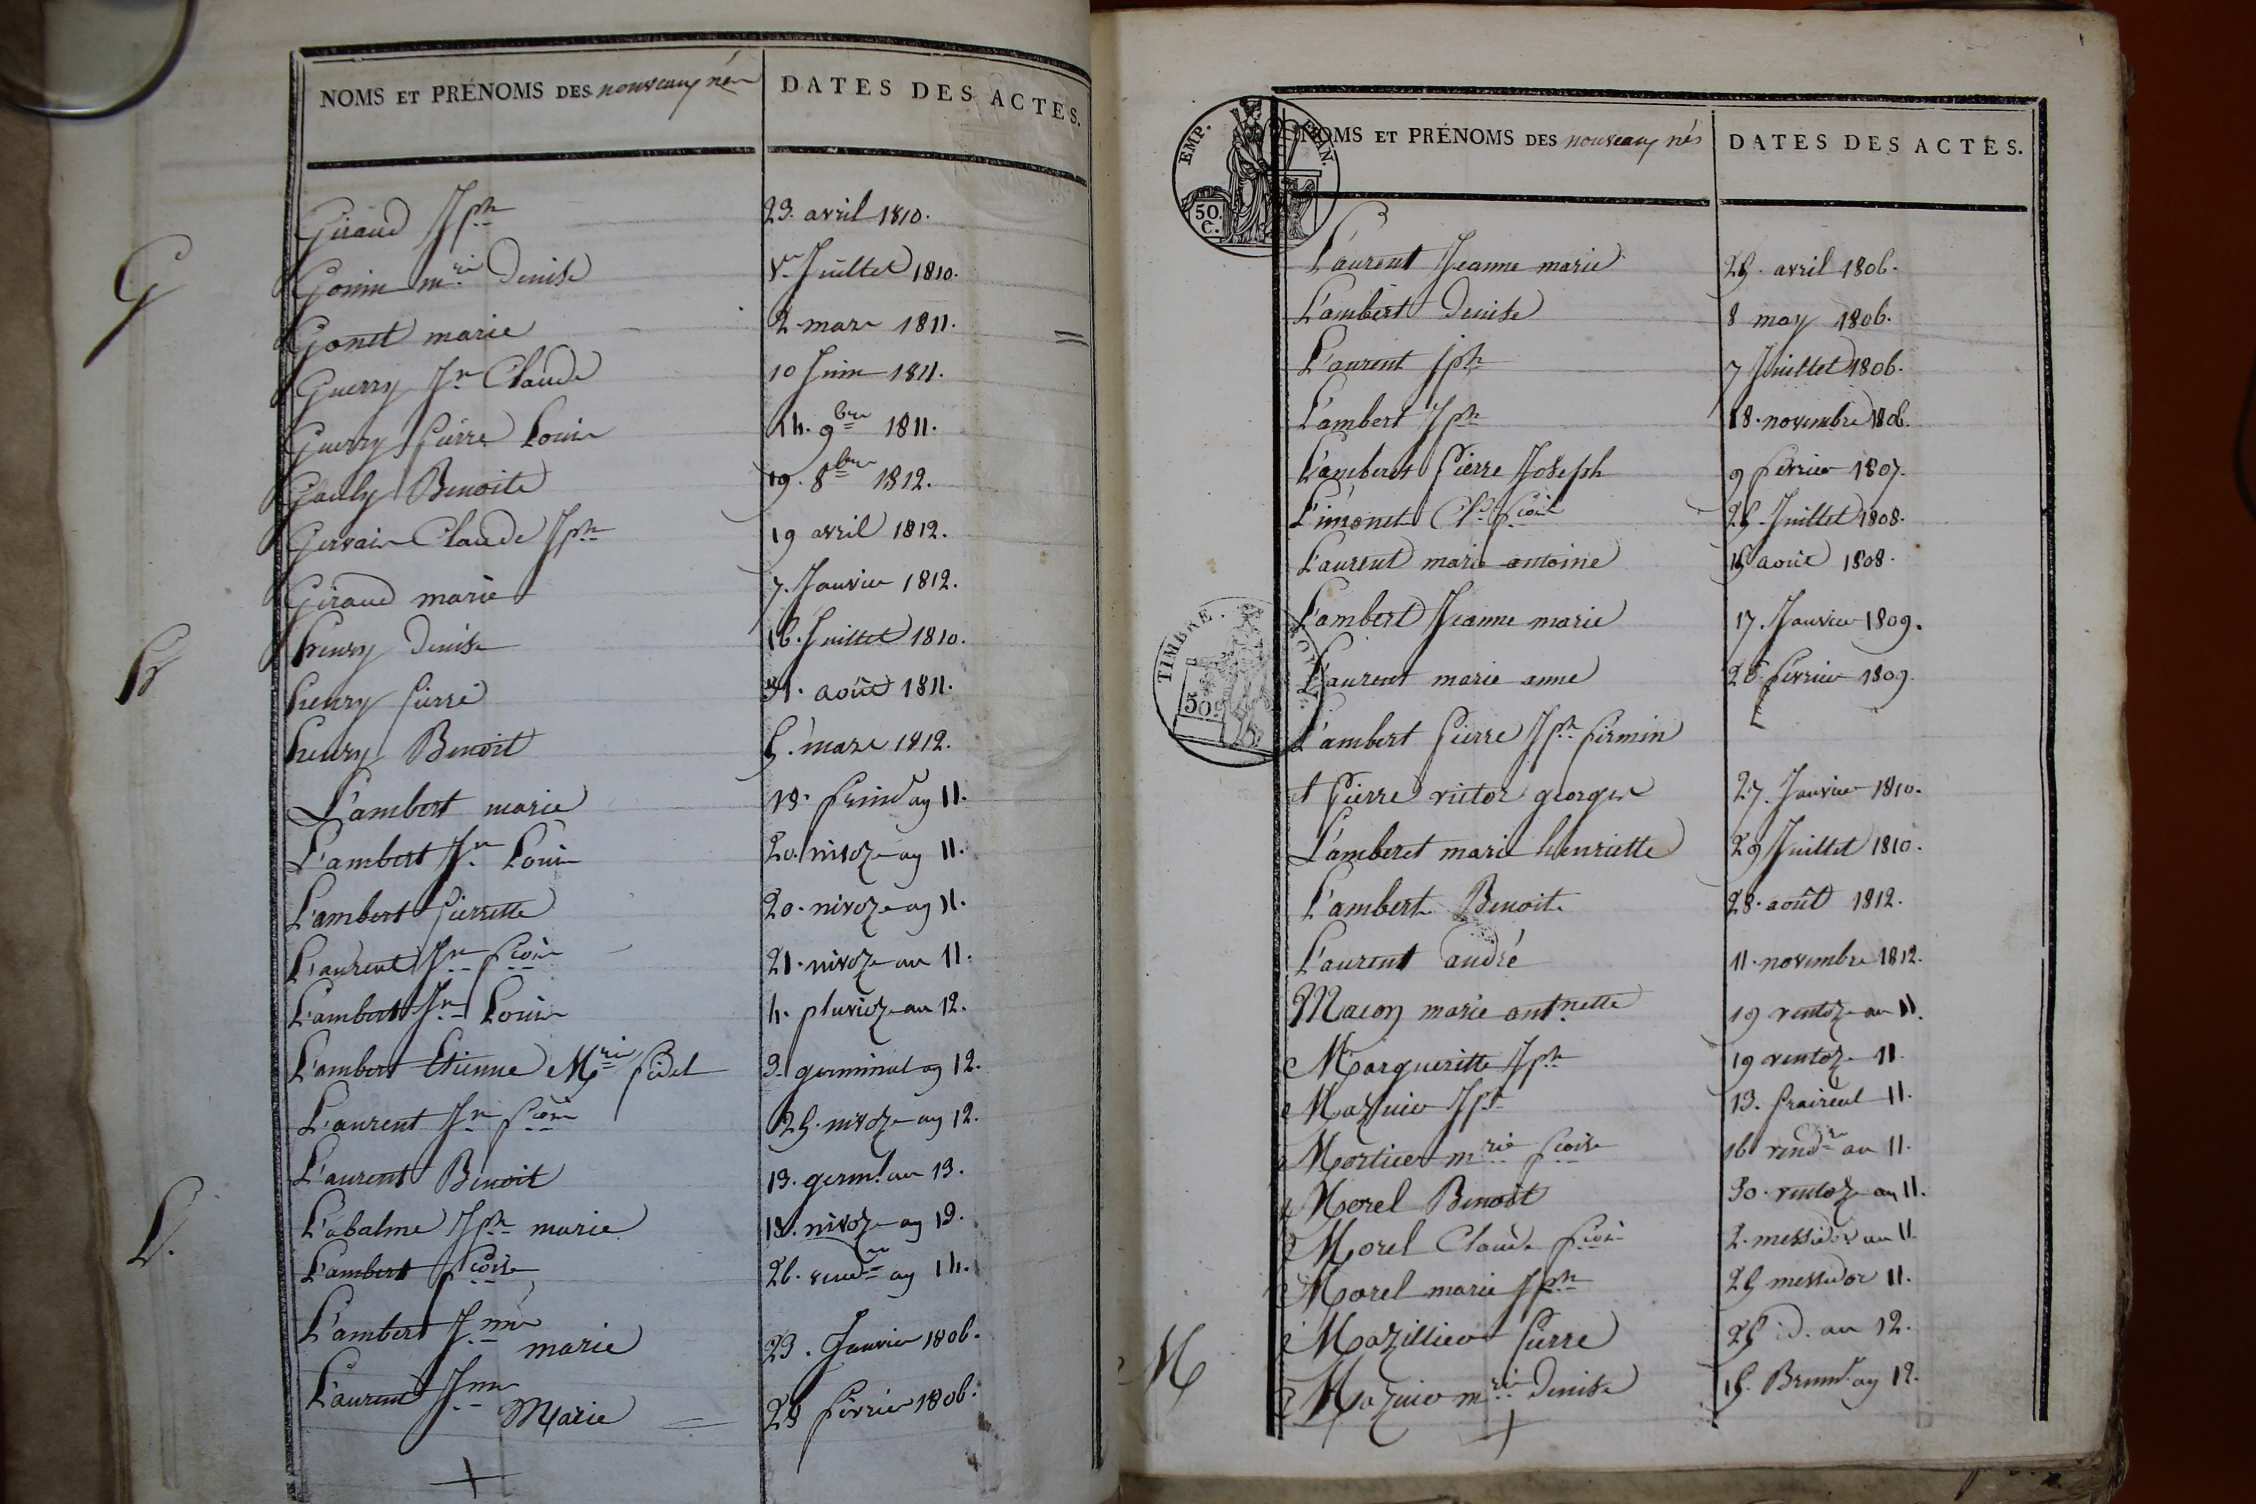 NOMS ET PRÉNOMS DES nouveaux nés
DATES DES ACTES.
Giraud Jph 23. avril 1810.
Gonin m.rie Denise 1.er Juillet 1810.
Gonet marie 2 mars 1811.
Guerry Jn Claude 10 Juin 1811.
Guerry Pierre Louis 14. 9bre 1811.
Gauly Benoite 19. 8bre 1812.
Gervais Claude Jph 19 avril 1812.
Giraud marie 7. Janvier 1812.
henry Denise 16. Juillet 1810.
henry Pierre 31. août 1811.
henry Benoit 5. mars 1812.
Lambert marie 18. frimre an 11.
Lambert Jn Louis 20. nivoze an 11.
Lambert Pierrette 20. nivoze an 11.
Laurent Jn fcois 21. nivoze an 11.
Lambert Jn Louis 4. pluvioze an 12.
Lambert Etienne Mrie fidel 3. germinal an 12.
Laurent Jn fcois 25. nivoze an 12.
Laurent Benoit 13. germ.l an 13.
Labalme Jph marie 18. nivoze an 13.
Lambert fcoise 26. vendre an 14.
Lambert Jnne
marie 23. Janvier 1806.
Laurent Jnne
Marie 28 février 1806.
G
h
L.
EMP. FRAN.
50.
C.
NOMS ET PRÉNOMS DES nouveaux nés
DATES DES ACTES.
Laurent Jeanne marie 25. avril 1806.
Lambert Denise 8 may 1806.
Laurent jph 7 Juillet 1806.
Lambert Jph 18. novembre 1806.
Lamberet Pierre Joseph 9 février 1807.
Limonet Cl. fcois 25. Juillet 1808.
Laurent marie antoine 15 août 1808.
Lambert Jeanne marie 17. Janvier 1809.
Laurent marie anne 26 février 1809.
Lambert Pierre Jph firmin
et Pierre victor georges 27. Janvier 1810.
Lamberet marie henriette 29 Juillet 1810.
Lambert Benoite 28. août 1812.
Laurent andré 11. novembre 1812.
Macon marie antnette 19 ventoze an 11.
Margueritte Jph 19 ventoze 11.
Mazuier Jph 13. prairial 11.
Mortier mrie fcoise 16 vendre an 11.
Morel Benoit 30. ventoze an 11.
Morel Claude fcois 2. messidor an 11
Morel marie Jph 25 messidor 11.
Mazillier Pierre 25 id. an 12.
Mazuier mrie Denise 15. Brumre an 12.
M
TIMBRE.
50